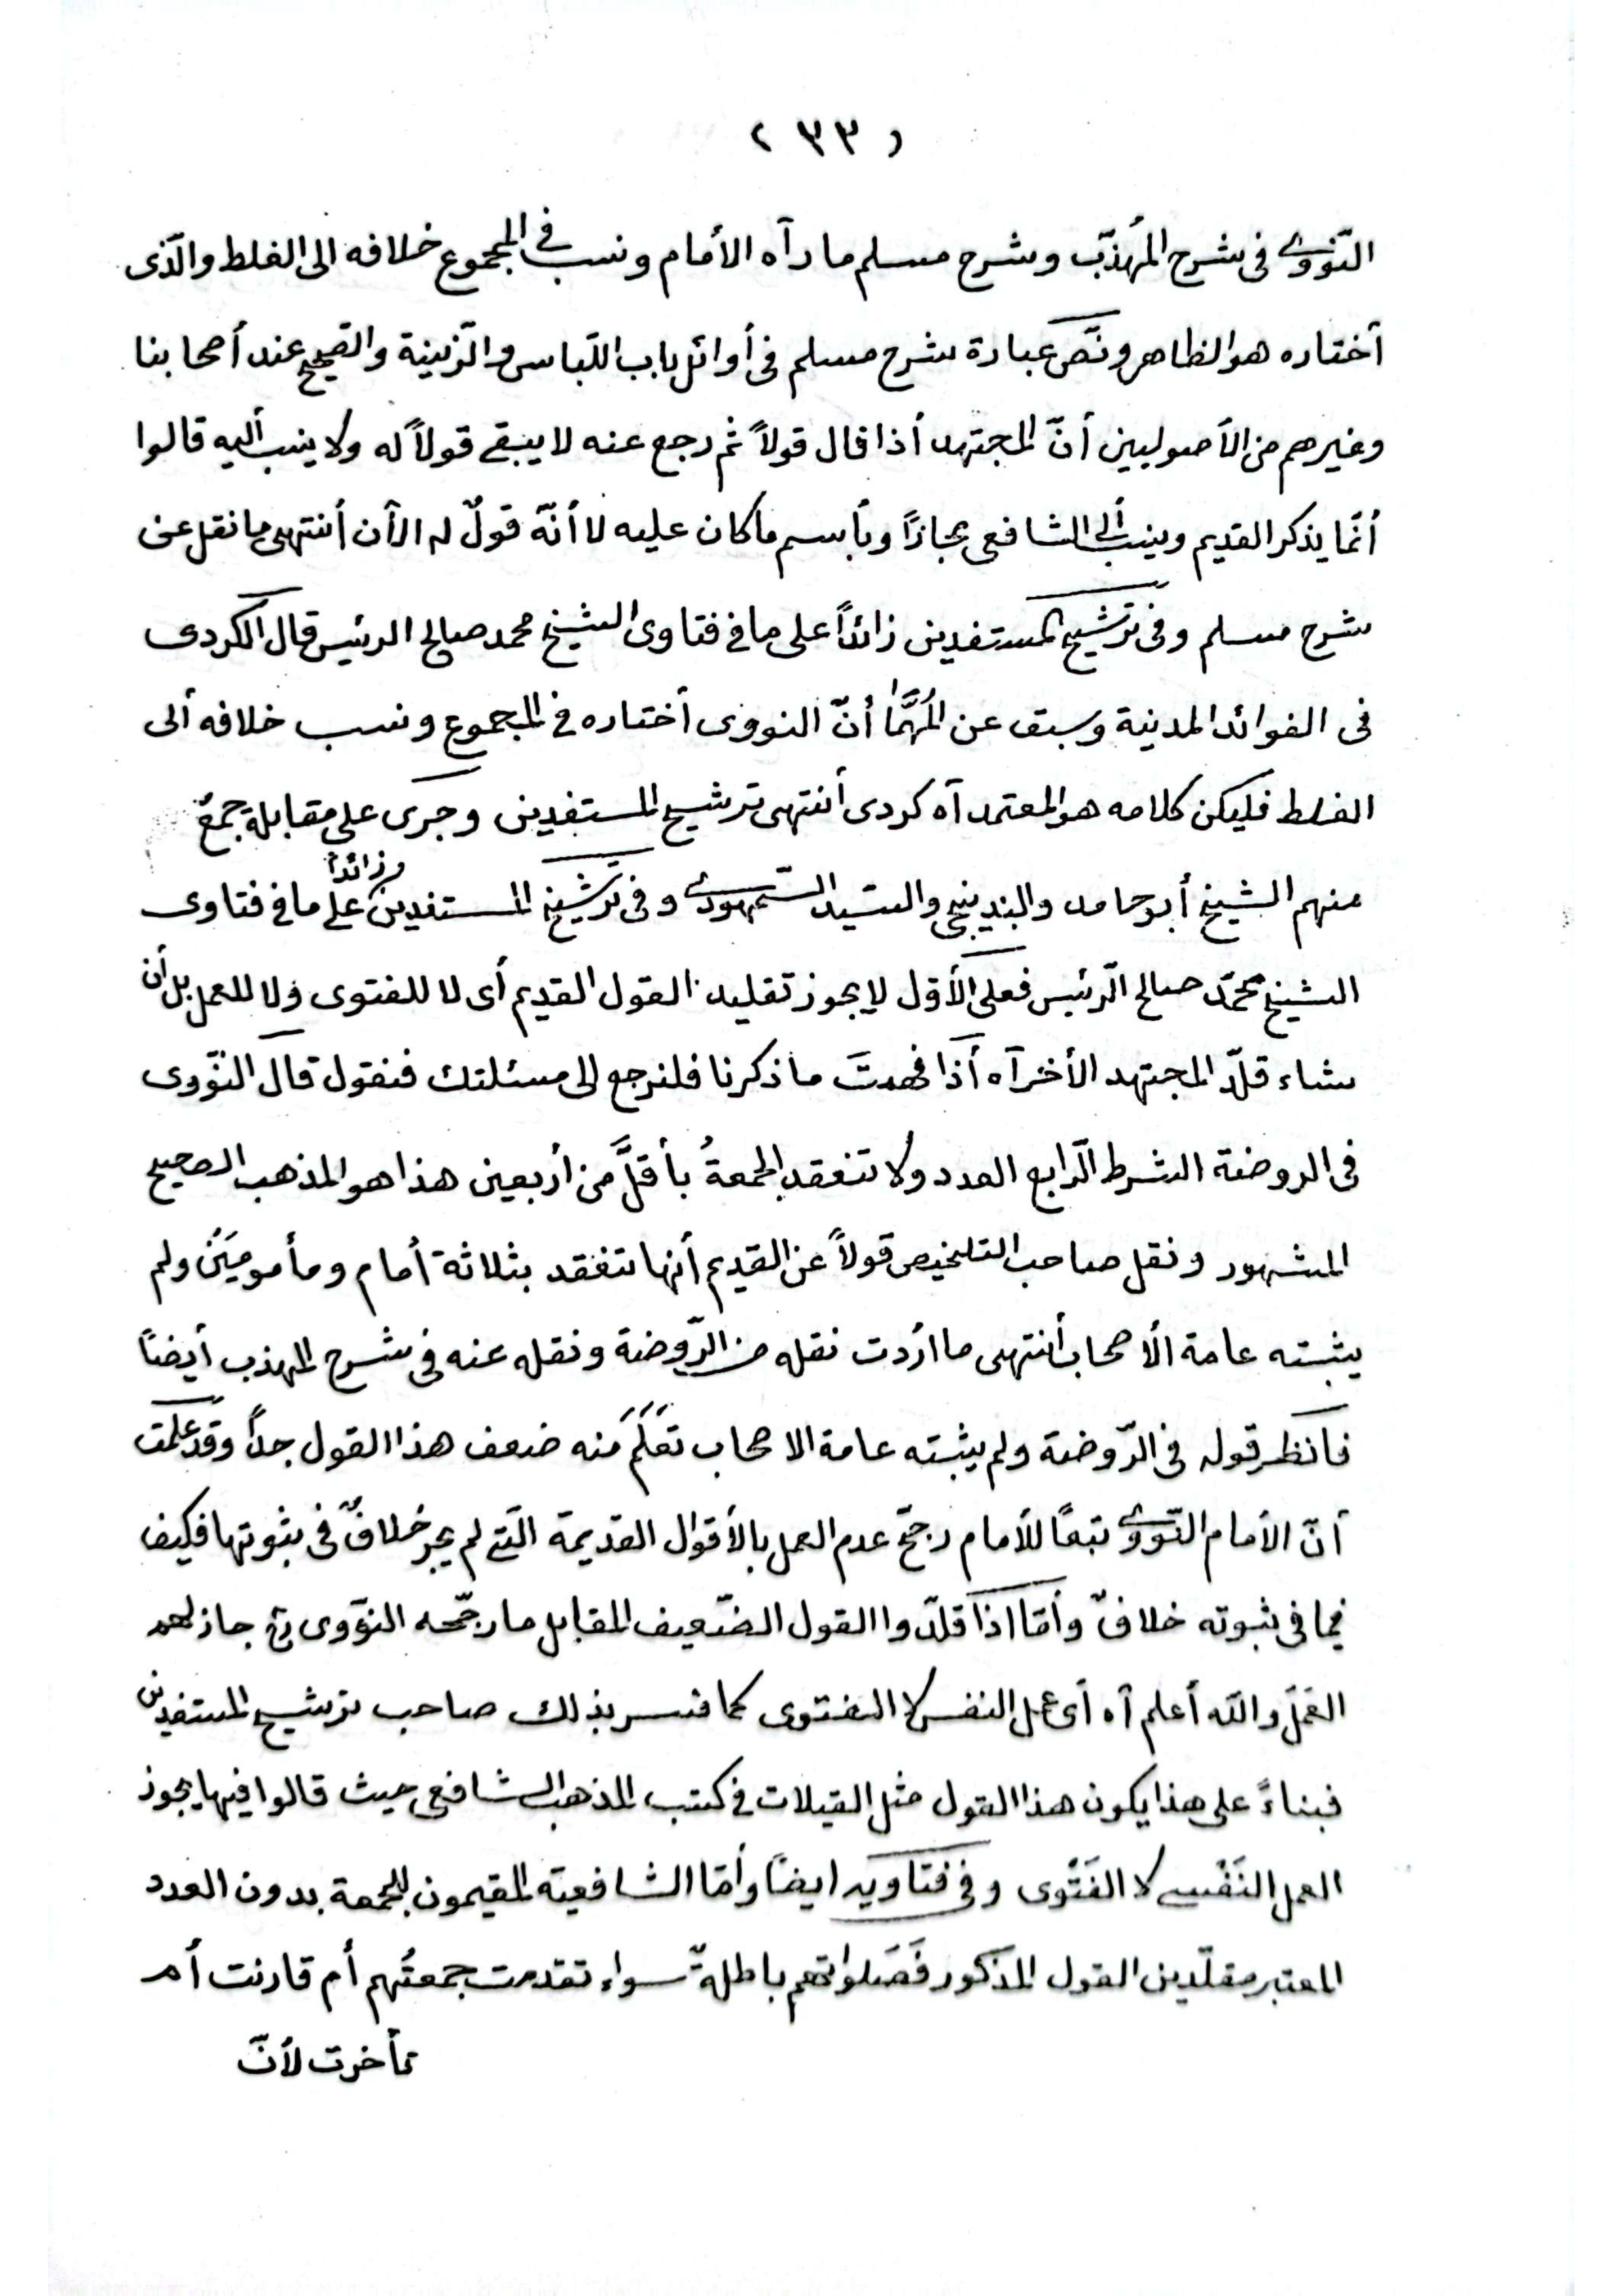 ( ٣٣ )
النّووى فى شرح المُهذّب وشرح مسلم ما رآه الأمام ونسب فى المجموع خلافه الى الغلط والّذى
أختاره هو الظاهر ونَصّ عبارة شرح مسلم فى أوائل باب اللّباس والزّينة والصّحيح عند أصحابنا
وغيرهم من الأصوليين أنّ المجتهد أذا قال قولاً ثم رجع عنه لا يبقى قولاً له ولا ينسب أليه قالوا
أنّما يذكر القديم وينسب ألى الشافعى مجازًا وبأسم ما كان عليه لا أنّه قولٌ له الآن أنتهى ما نقل عن
شرح مسلم وفى ترشيح المستفدين زائداً على ما فى فتاوى الشيخ محمد صالح الرئيس قال الكردى
فى الفوائد المدنية وسبق عن المُهمَّا أنّ النووى أختاره فى المجموع ونسب خلافه ألى
الغلط فليكن كلامه هو المعتمد آه كردى أنتهى ترشيح المستفدين وجرى على مقابلة جمعٌ
منهم الشيخ أبو حامد والبندنيجى والسّيد السّمهودى وفى ترشيح المستفدين زائداً على ما فى فتاوى
الشيخ محمّد صالح الرّئيس فعلى الأوّل لا يجوز تقليد القول القديم أى لا للفتوى ولا للعمل بل أن
شاء قلّد المجتهد الأخر آه أذا فهمتَ ما ذكرنا فلنرجع الى مسئلتك فنقول قال النّووى
فى الروضة الشرط الرّابع العدد ولا تنعقد الجمعةُ بأقلَّ من أربعين هذا هو المذهب الصحيح
المشهور ونقل صاحب التلخيص قولاً عن القديم أنها تنعقد بثلاثة أمام ومأمومَيْن ولم
يثبته عامة الأصحاب أنتهى ما اردت نقله من الرّوضة ونقله عنه فى شرح المهذب أيضاً
فانظر قوله فى الرّوضة ولم يثبته عامة الاصحاب تعَلَمَ منه ضعف هذا القول جداً وقد علمت
أنّ الأمام النّووى تبعًا للأمام رجّح عدم العمل بالأقوال القديمة الّتى لم يجر خلافٌ فى ثبوتها فكيف
فيما فى ثبوته خلافٌ وأمّا اذا قلّدوا القول الضّعيف المقابل ما رجّحه النوّوى رح جاز لهم
العَمَل والله أعلم آه أى عمل النفس لا الفتوى كما فسر بذلك صاحب ترشيح المستفدين
فبناءً على هذا يكون هذا القول مثل القيلات فى كتب المذهب الشافعى حيث قالوا فيها يجوز
العمل النَفْسى لا الفَتْوى وفى فتاويه ايضاً وأمّا الشافعية المقيمون للجمعة بدون العدد
المعتبر مقلّدين القول المذكور فَصَلواتهم باطلةٌ سواء تقدمت جمعتُهم أم قارنت أم
تأخرت لأنّ